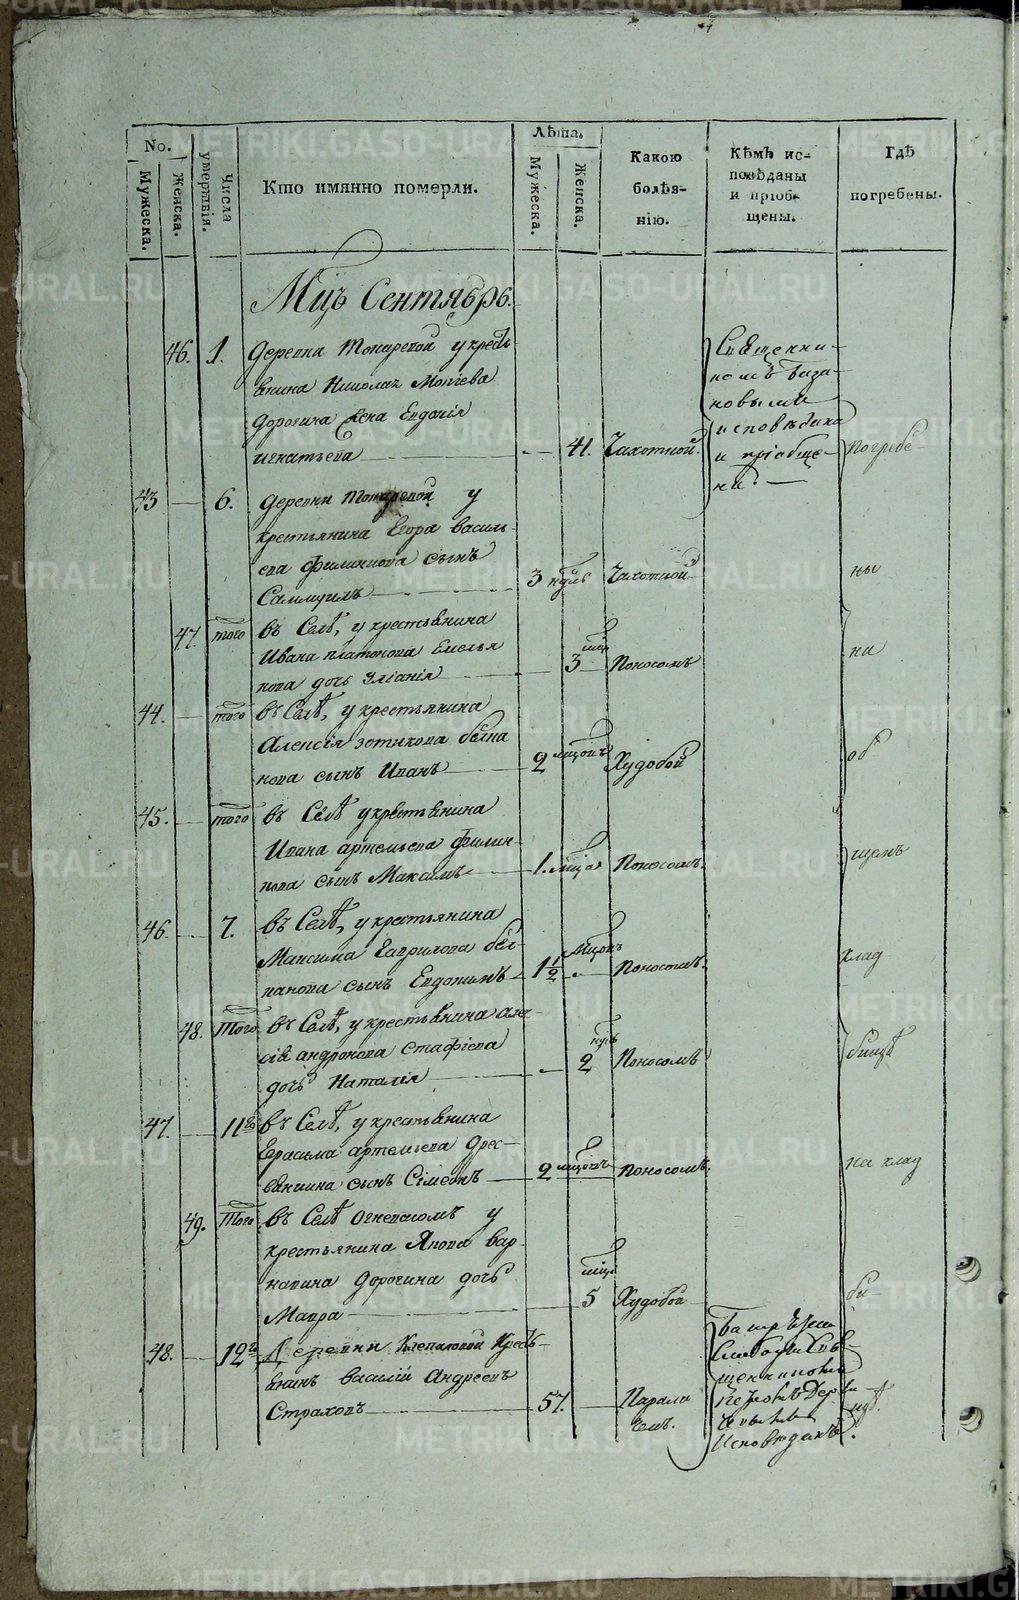 No.
Мужеска.
Женска.
Числа умертвія.
Кто имянно померли.
Лѣта.
Мужеска.
Женска.
Какою болѣзнію.
Кѣмъ исповѣданы и пріобщены.
Гдѣ погребены.
Мцъ Сентябрь.
46. 1. Деревни Токаревой у кресть
янина Николая Моисеева
Дорогина жена Евдокія
игнатьева 41. Чахоткой.
Священни-
комъ
исповѣдана
и пріобще-
на.
Погребе
43 6. Деревни Токаревой у
крестьянина Егора василь
ева филиппова сынъ
Саммуилъ 3 ндль Чахоткой
ны
47. того въ Селѣ, у крестьянина
Ивана платонова Емелья
нова дочь Уліанія 3 мцъ Поносомъ
на
44. того въ Селѣ, у крестьянина
Алексія зотикова
нова сынъ Иванъ 2 мцовъ Худобой
об
45. того въ Селѣ у крестьянина
Ивана артемьева филип-
пова сынъ Максимъ 1. мца Поносомъ.
щемъ
46. 7. въ Селѣ, у крестьянина
Максима Гаврилова
панова сынъ Евдокимъ 1 1/2 мцовъ Поносомъ.
клад
48. Того въ Селѣ, у крестьянина але-
сія андронова Стафіева
дочь Наталія 2 ндль Поносомъ
бищѣ
47. 11го въ Селѣ, у крестьянина
Герасима артемьева Дрес-
вянкина сынъ Сімеонъ 2 мцовъ поносомъ.
на клад
49. Того въ Селѣ Огневскомъ у
крестьянина Якова вар-
навина Дорогина дочь
Мавра 5 мцъ Худобой
би-
48. 12го Деревни Клепаловой Кресть-
янинъ Василій Андреевъ
Страховъ 57. Парали
чемъ.
Исповѣданъ.
щѣ.